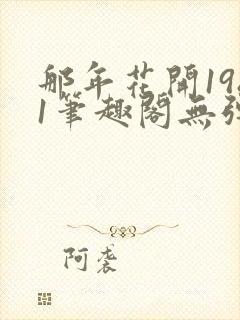 那年花開19
1筆趣閣無
阿袭